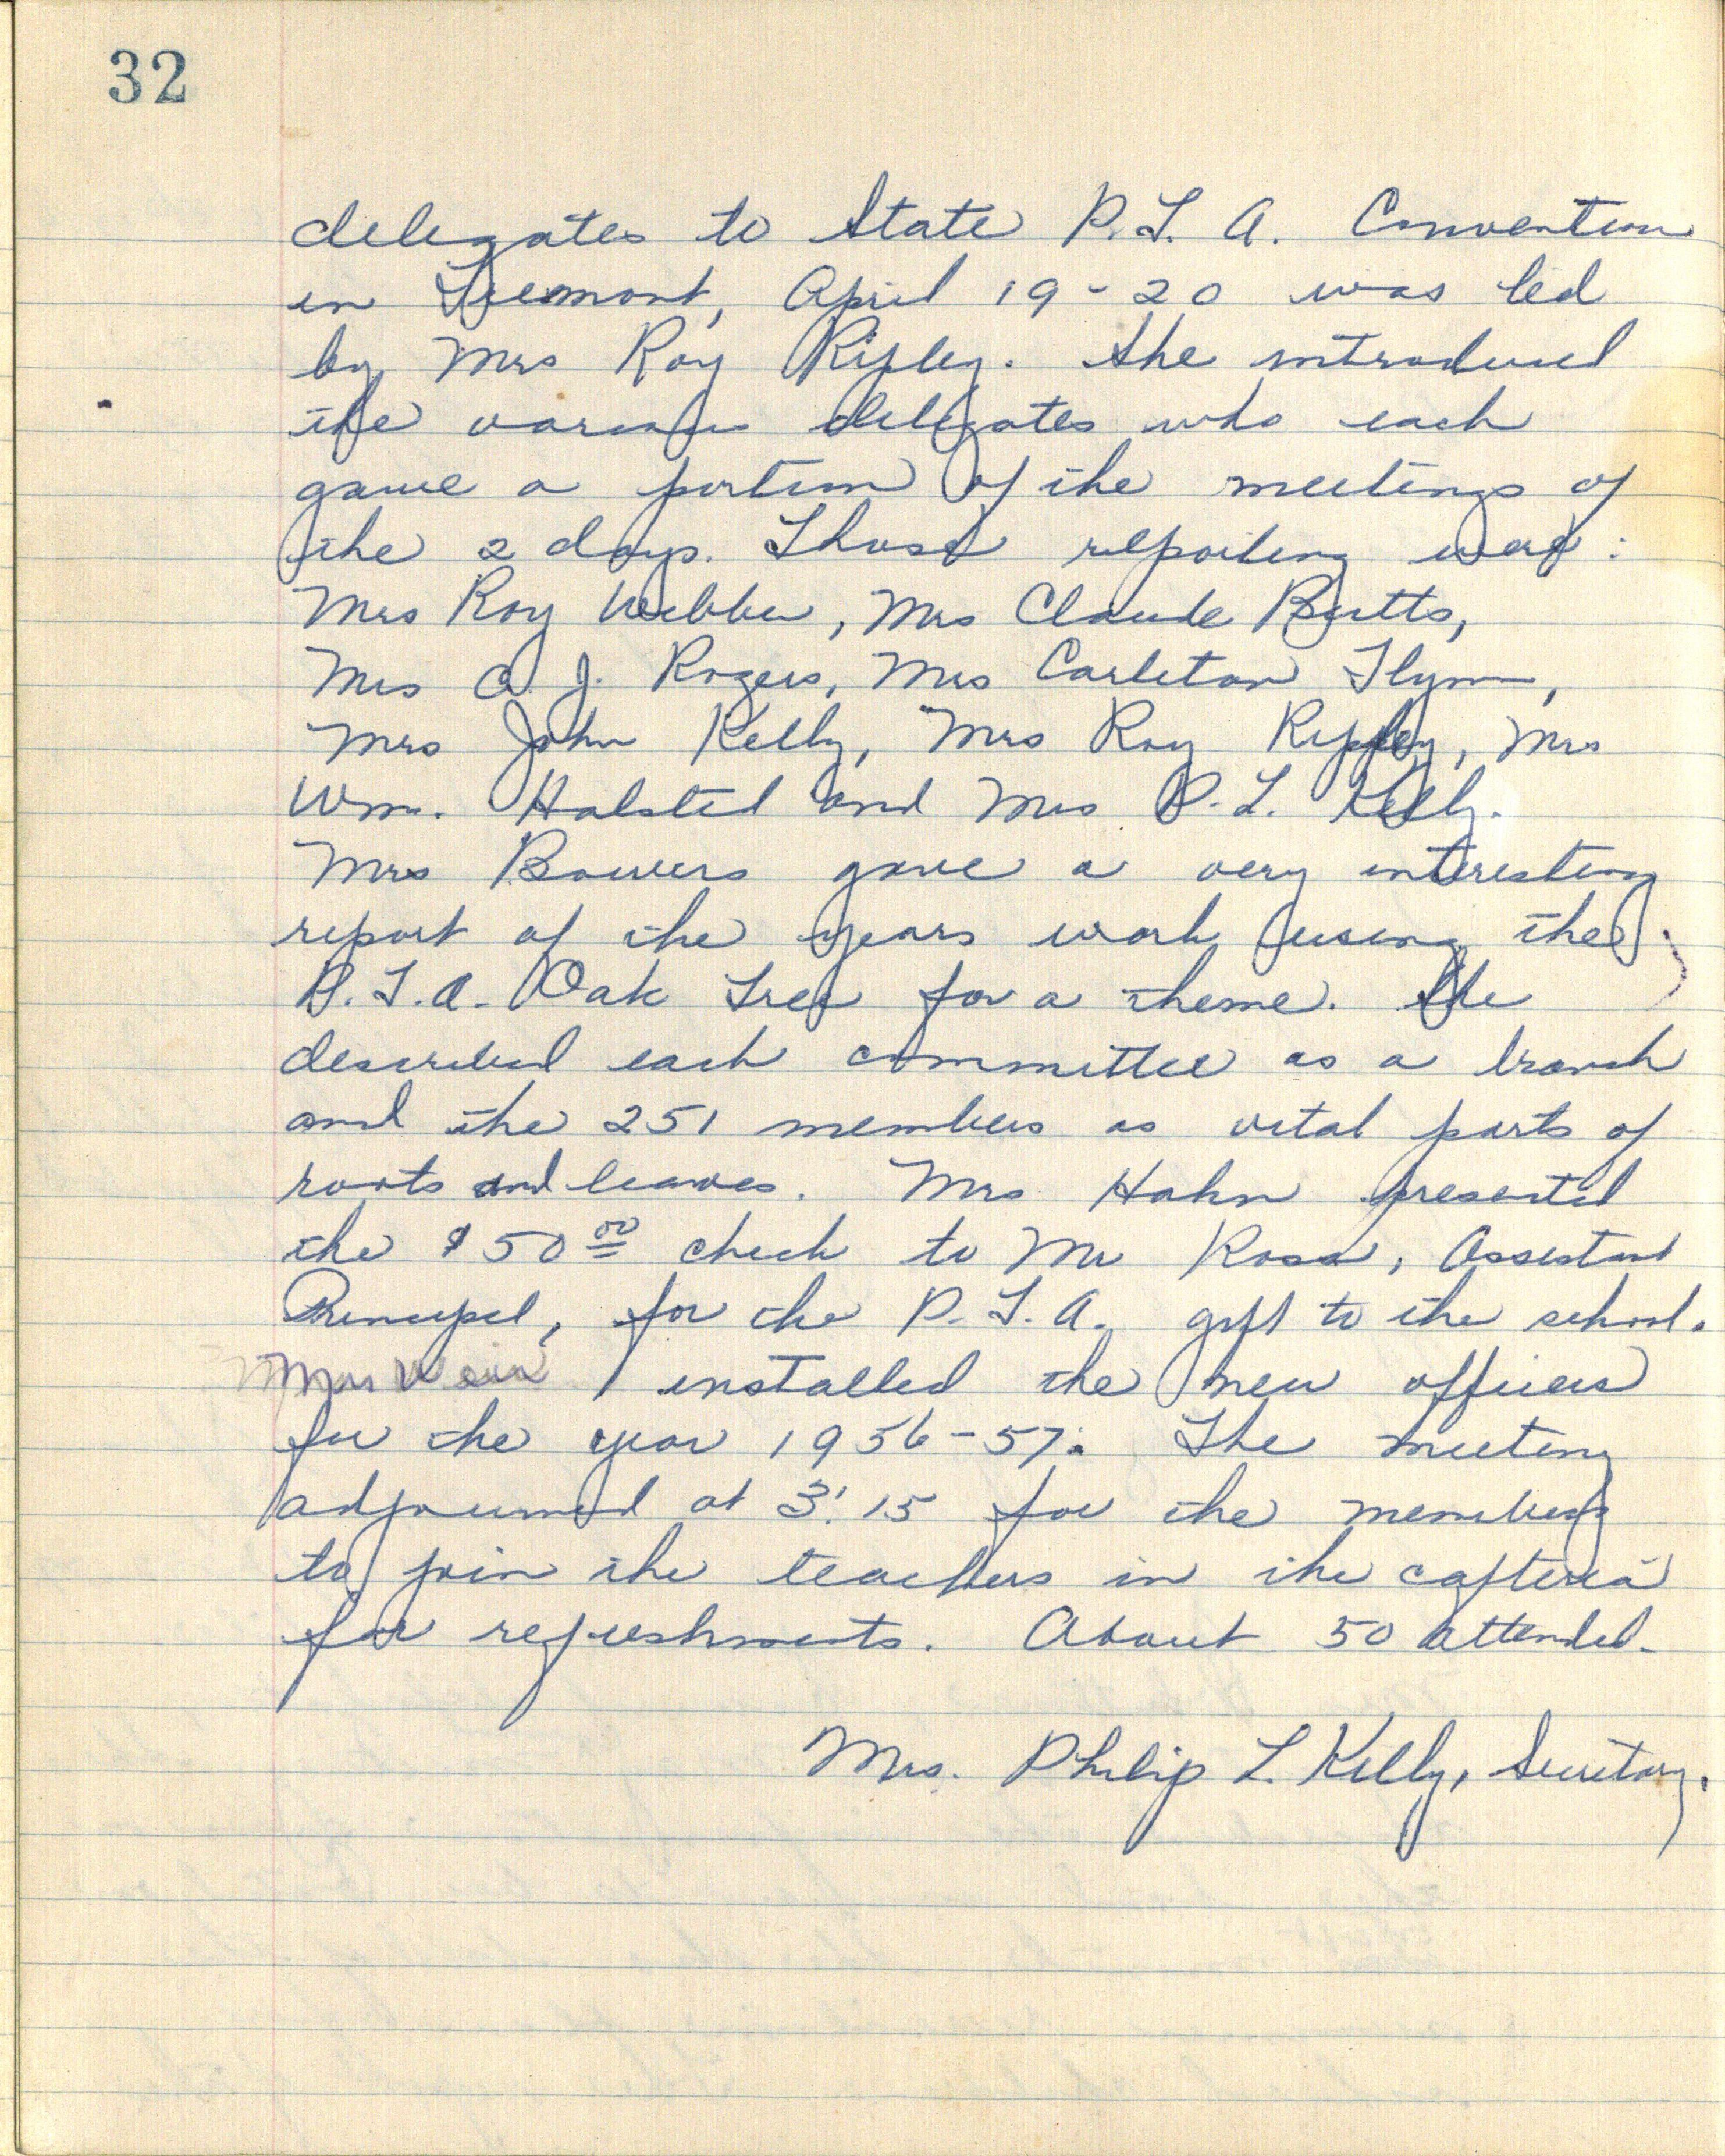 32
delegates to State P.T.A. Convention
in Fremont, April 19-20 was led
by Mrs Roy Ripley. She introduced
the various delegates who each
gave a portion of the meetings of
the 2 days. Those reporting were:
Mrs Roy Webber, Mrs Claude Butts,
Mrs A. J. Rogers, Mrs Carleton Flynn,
Mrs John Kelly, Mrs Roy Ripley, Mrs
Wm. Halsted and Mrs P. L. Kelly.
Mrs Bowers gave a very interesting
report of the years work using the
P.T.A. Oak Tree for a theme. She
described each committee as a branch
and the 251 members as vital parts of
roots and leaves. Mrs Hahn presented
the $50 00 check to Mr Ross, Assistant
Principal, for the P.T.A. gift to the school.
Mrs Weir installed the new officers
for the year 1956-57. The meeting
adjourned at 3:15 for the members
to join the teachers in the cafteria
for refreshments. About 50 attended.
Mrs. Philip L. Kelly, Secretary.